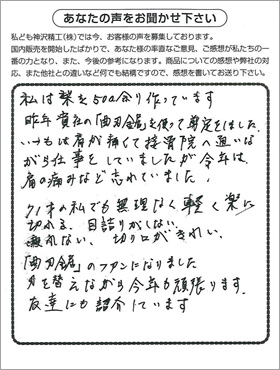 あなたの声をお聞かせ下さい
私ども神沢精工(株)では今、お客様の声を募集しております。
国内販売を開始したばかりで、あなた様の率直なご意見、ご感想が私たちの一
番の力となり、また、今後の参考になります。商品についての感想や弊社の対
応、また他社との違いなど何でも結構ですので、感想を書いてお送り下さい。
私は梨を50a余り作っています
昨年貴社の「両刃鋸」を使って剪定をしました
いつもは肩が痛くて接骨院へ通いな
がら仕事をしていましたが今年は、
肩の痛みなど忘れていました。
71才の私でも無理なく軽く楽に
切れる、目詰りがしない
疲れない、切り口がきれい、
「両刃鋸」のファンになりました
刃を替えながら今年も頑張ります。
友達にも紹介しています